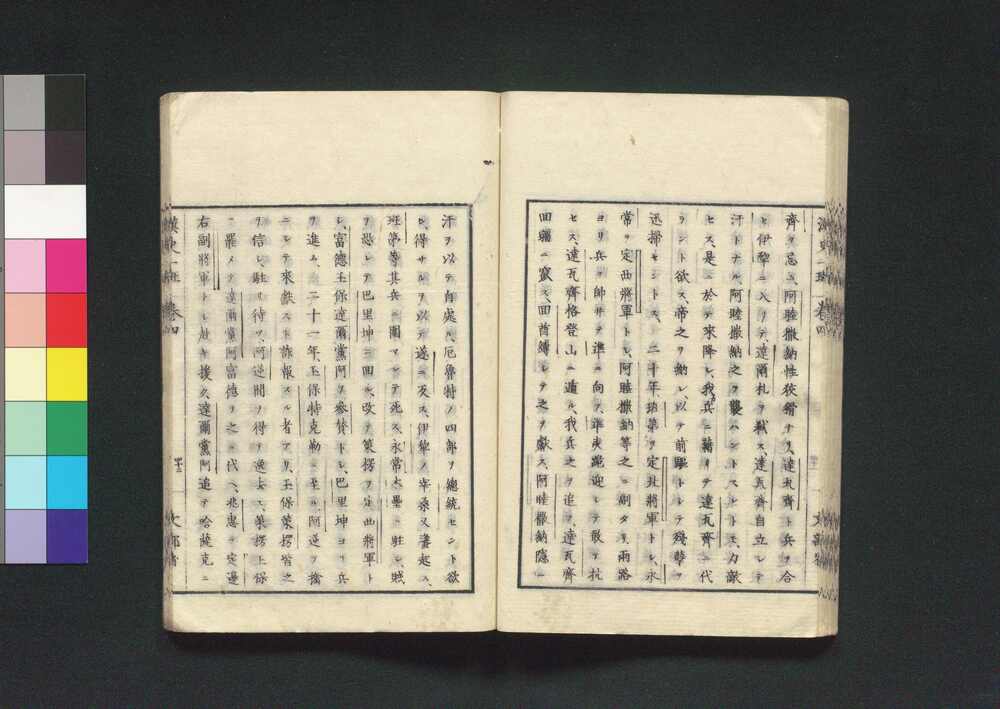 齊ヲ忌ム、阿睦撒納性狡猾ナリ、達瓦齊ト兵ヲ合
セ伊犂ニ入リテ、達爾札ヲ弑ス、達瓦齊自立シテ
汗トナル阿睦撒納之ヲ襲ハントスレトモ力敵
セス、是ニ於テ來降シ、我兵ニ藉リテ達瓦齊ニ代
ラント欲ス、帝之ヲ納レ、以テ前驅トシテ殘孽ヲ
迅掃セントス、二十年、班第ヲ定北將軍トシ、永
常ヲ定西將軍トシ、阿睦撒納等之ニ副タリ、兩路
ヨリ兵ヲ帥井テ進ミ向フ、準夷跪迎シテ敢テ抗
セス、達瓦齊格登山ニ遁ル、我兵之ヲ追フ、達瓦齊
回疆ニ竄ス、回酋縛シテ之ヲ獻ス、阿睦撒納隱ニ
滿史一班 卷四
汗ヲ以テ自處ル、厄魯特ノ四部ヲ總統セント欲
シ、得サルヲ以テ遂ニ反ス、伊犂ノ宰桑又妻起ス、
班第等其兵ニ圍マレテ死ス、永常木壘ニ駐シ、賊
ヲ恐レテ巴里坤ニ回ル、改テ策楞ヲ定西將軍ト
シ、富德玉保達爾黨阿ヲ參贊トシ、巴里坤ヨリ兵
ヲ進ム、二十一年、玉保特克勒ニ至ル、阿逆ヲ擒
ニシテ來獻スト詐報スル者アリ、玉保策楞皆之
ヲ信シ、駐リ待ツ、阿逆間ヲ得テ逸去ス、策楞玉保
ヲ罷メテ達爾黨阿富德ヲ之ニ代ヘ、兆惠ヲ定邊
右副將軍トシ赴キ援フ、達爾黨阿追テ哈薩克ニ
滿史一班 卷四